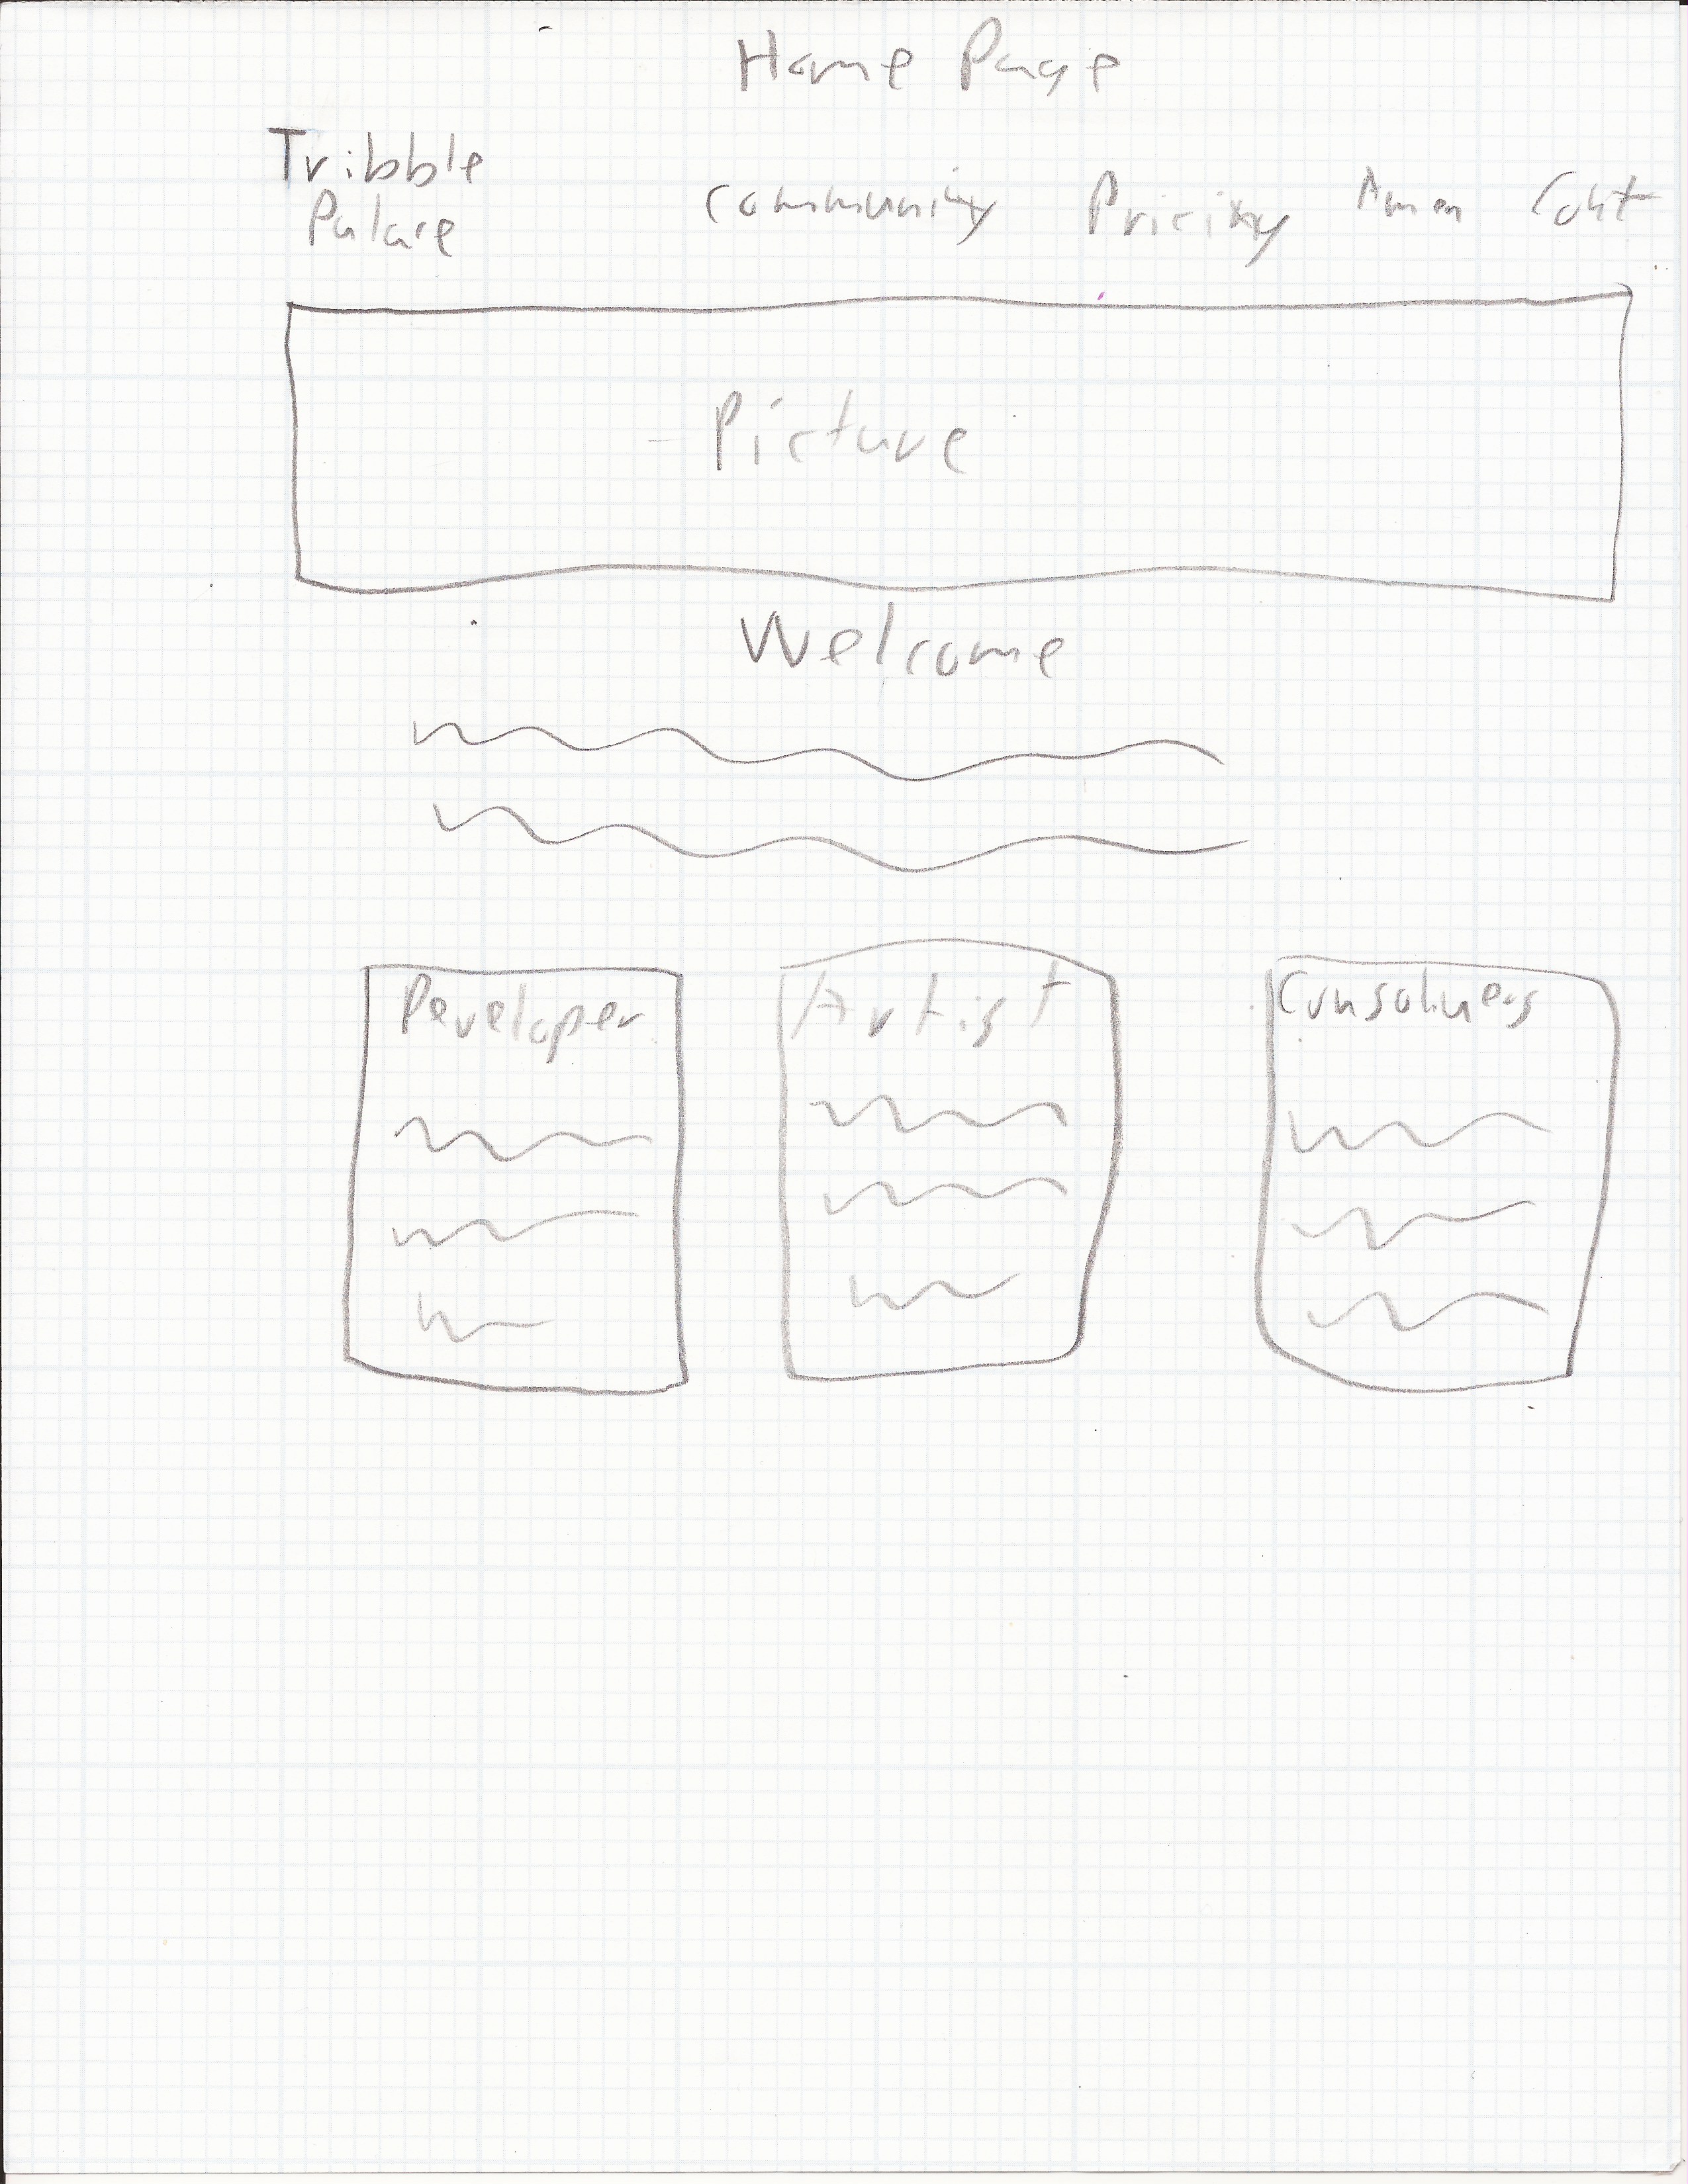 Home Page
Tribble
Palace
Community Pricing Amen Cont
Picture
Welcome
Developer Artist